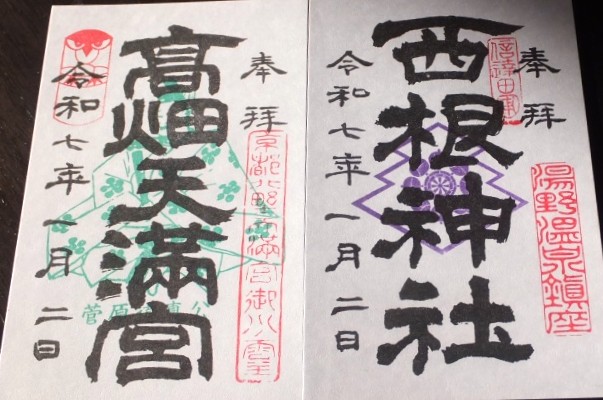 奉拝
信達田東
西根神社
湯野温泉鎮座
令和七年一月二日
奉拝
高畑天満宮
京都北野天満宮御分霊
菅原道真公
令和七年一月二日